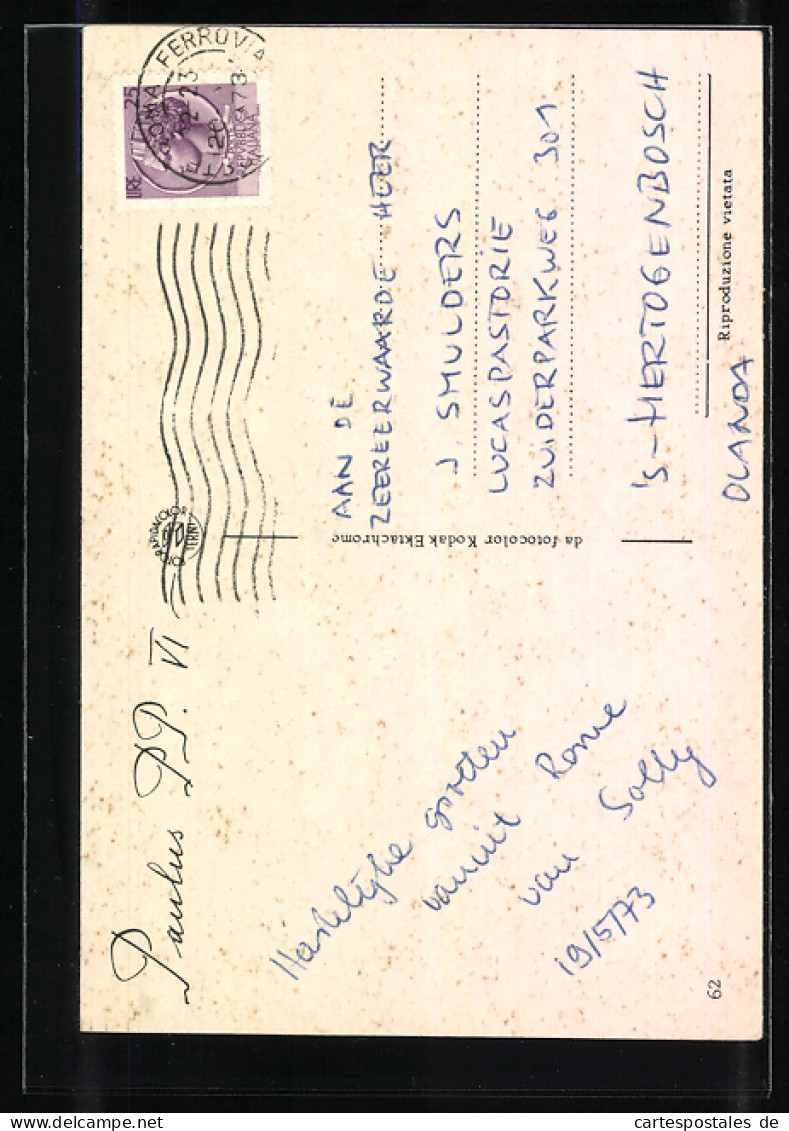 Paulus PP. VI
Hartelijke groeten
vanuit Rome
van Solly
19/5/73
62
da fotocolor Kodak Ektachrome
TERNI
LIRE 25
REPVBBLICA
ITALIANA
ROMA FERROVIA
AAN DE
ZEEREERWAARDE HEER
J. SMULDERS
LUCASPASTORIE
ZUIDERPARKWEG 301
's-HERTOGENBOSCH
OLANDA
Riproduzione vietata
cartespostales de